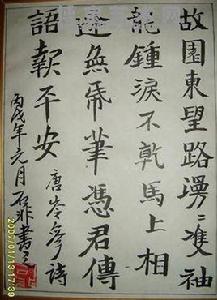 故園東望路漫〻雙袖
龍鍾淚不乾馬上相
逢無帋筆憑君傳
語報平安
唐岑參詩
丙戌年元月石非書
2007/01/13 17:39